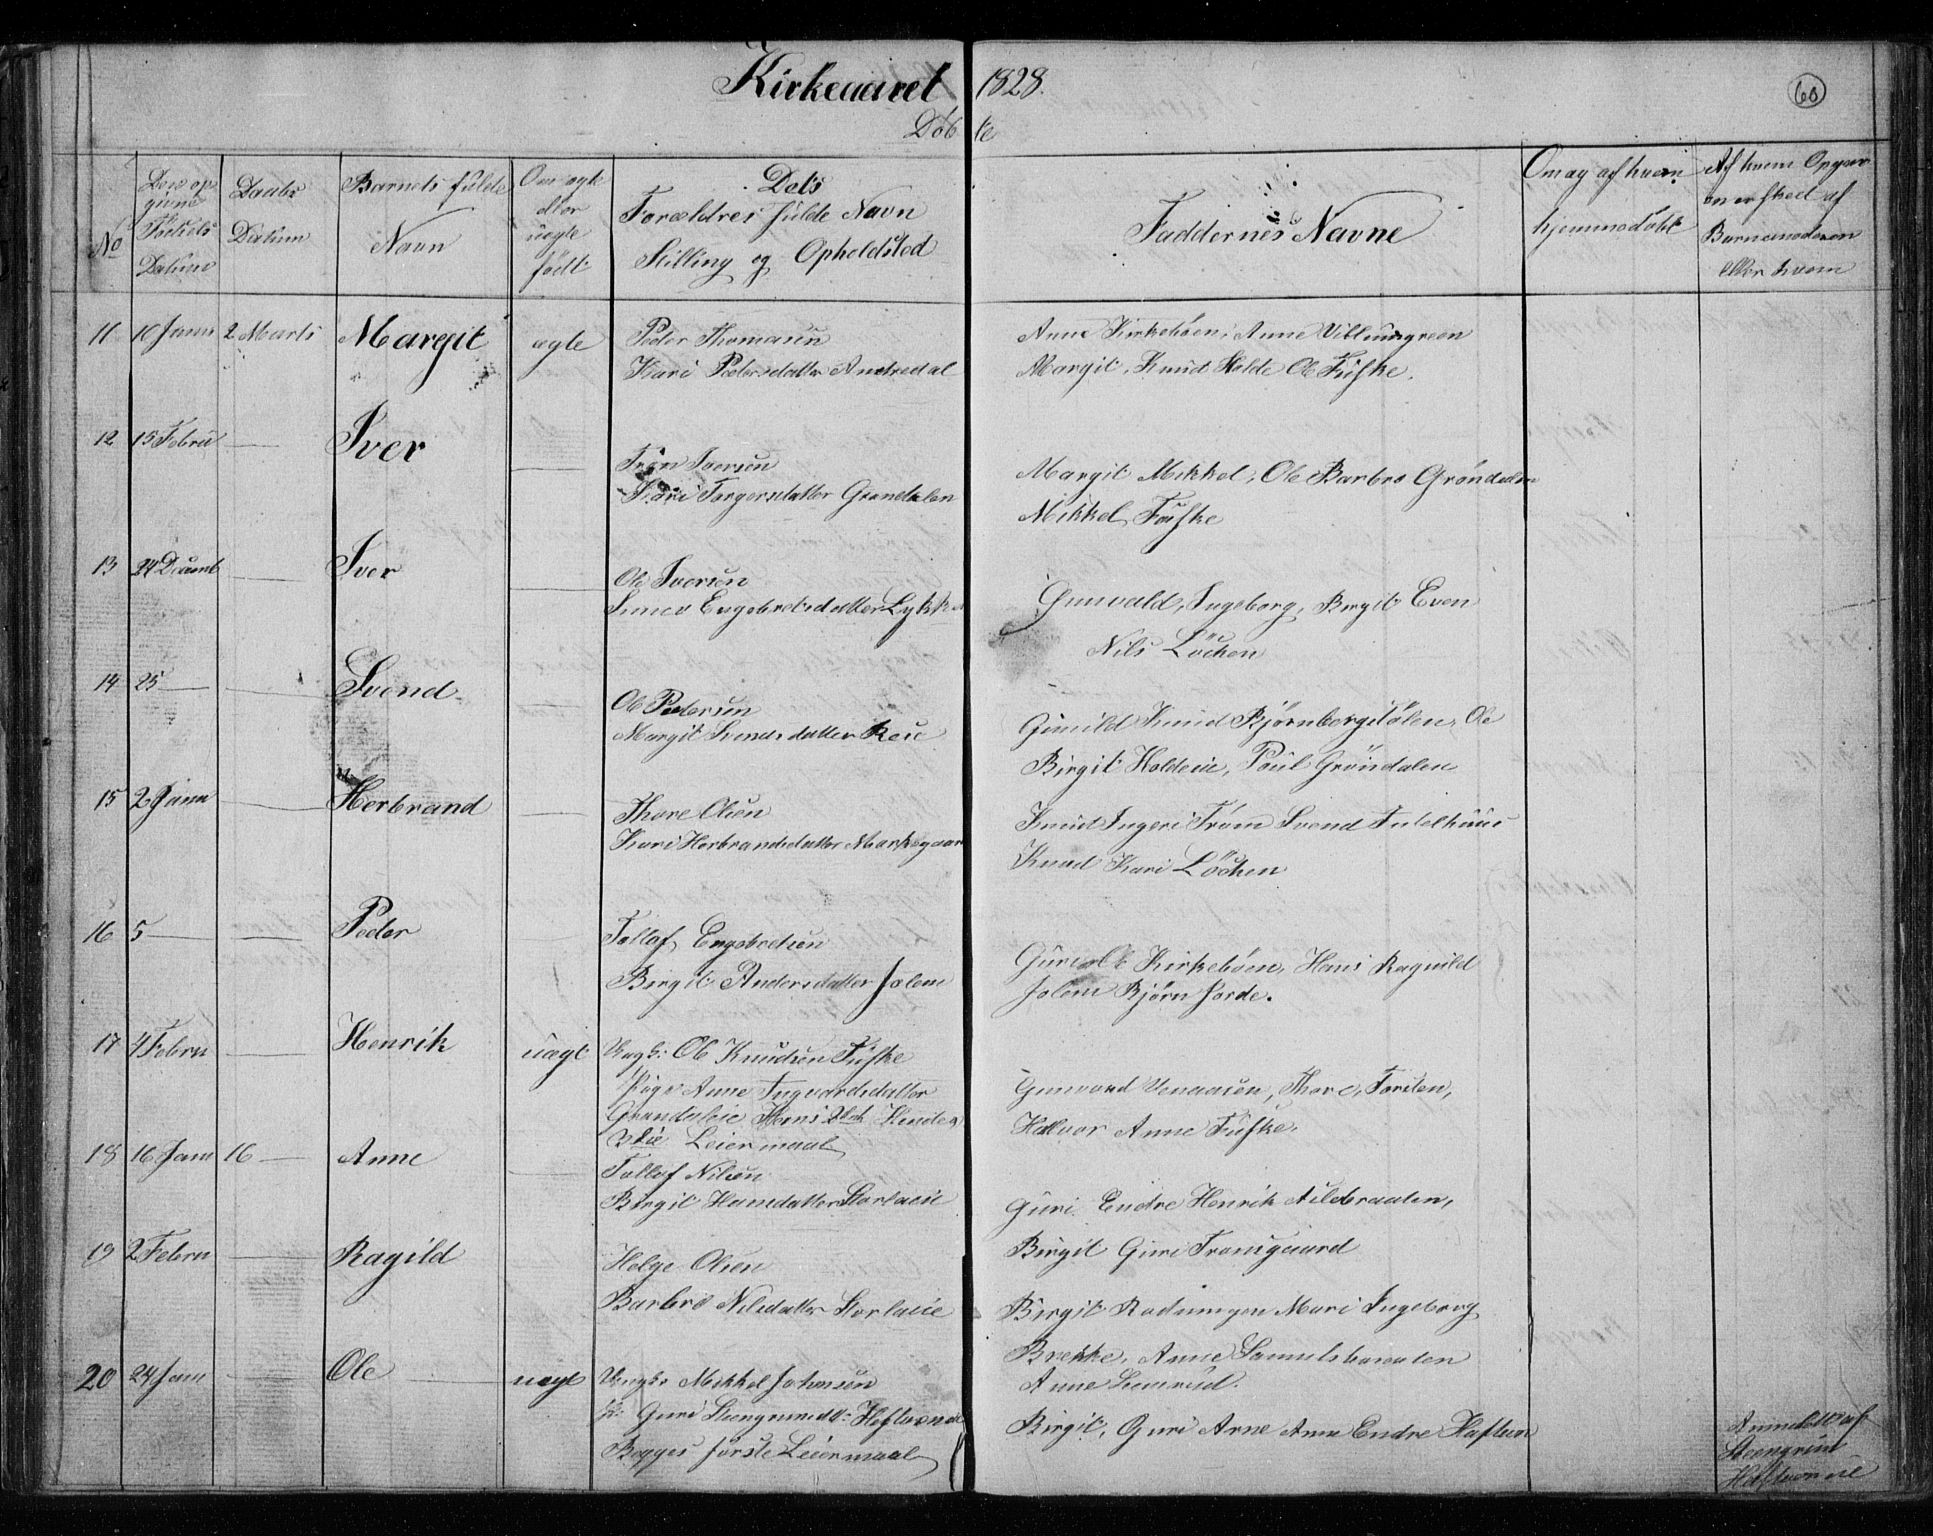 Kirkeaaret 1828.
60
Döbte
No
Den op
givne
Födsels
Datum
Daabs
Datum
Barnets fulde
Navn
Om ægte
eller
uægte
födt
Dets
Forældres fulde Navn
Stilling og Opholdsted
Faddernes Navne
Om og af hvem
hjemmedöbt
Af hvem Opgav
en er skeed af
Barnemoderen
eller hvem
11 10 Janu 2 Marts Margit ægte Peder Thomasen
Kari Pedersdatter Andredal
Anne Kirkeböen, Anne Villumgreen
Margit, Knud Holde Ole Tufske.
12 15 Febru — Iver — Tron Iversen
Kari Torgersdatter Grøndalen
Margit Mikkel, Ole Barbro Gröndalen
Mikkel Tufske
13 24 Decemb — Iver — Ole Iversen
Engebretsdatter Lykke
Gunvald, Ingeborg, Birgit Even
Nils Löchen
14 25 — — Svend — Ole Pedersen
Margit Svendsdatter Reie
Gunild Knud Björnbergstölen, Ole
Birgit Holdeie, Poul Gröndalen
15 2 Janu — Herbrand — Thore Olsen
Kari Herbrandsdatter Markegaar
Knud Ingeri Trom Svend
Knud Kari Löchen
16 5 — — Peder Tollof Engebretsen
Birgit Andersdatter Jolem
Guri Ole Kirkeböen, Hans Ragnild
Jolem Björn Jorde.
17 4 Febru — Henrik uægt Ungk: Ole Knudsen Tufske
Pige Anne Ingvardsdatter
Grøndaleie Hans 2det Hendes
Leiermaal
Gunvord Venaasen, Thore, Torsten,
Halvor Anne Tufske.
18 16 Janu 16 — Anne — Tollof Nilsen
Birgit Hansdatter Storlaeie
Guri Endre Henrik Nilsbraaten,
Birgit Guri Tronsgaard
19 2 Febru — Ragild Helge Olsen
Barbro Nilsdatter Storlaeie
Birgit Rodningen Mari Ingeborg
Brekke, Anne Samulsbraaten
Anne
20 24 Janu — Ole — uægt Ungk: Mikkel Johnsen
P: Guri Steengrimsdt:
Begges förste Leiermaal
Birgit, Guri Arne Anne Endre Haftun
Anmeldt af
Steengrim